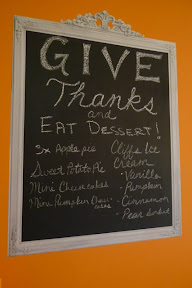 GIVE
Thanks
and
EAT DESSERT!
3x Apple pie
Sweet Potato Pie
Mini Cheesecakes
Mini Pumpkin Cheese-
cakes
Cliff's Ice
Cream
- Vanilla
- Pumpkin
- Cinnamon
- Pear